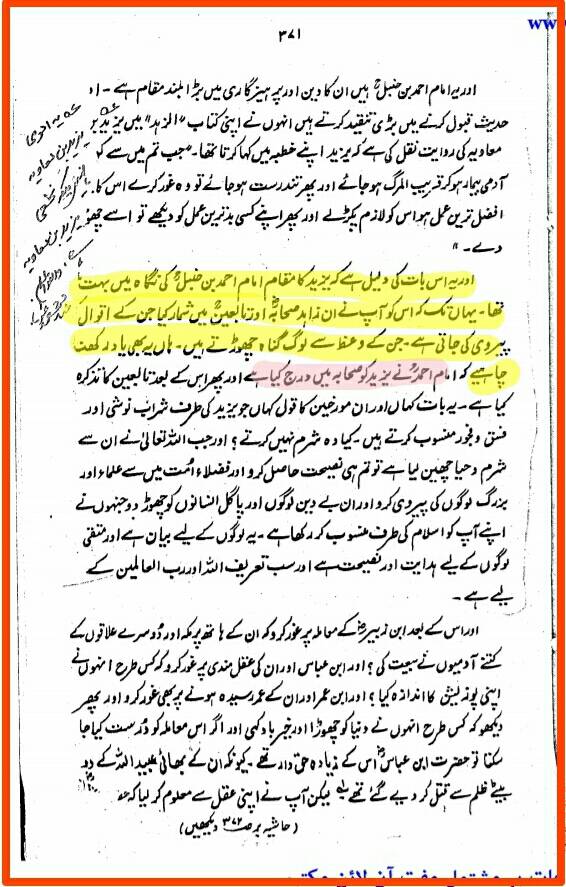 ۳۷۱
اور یہ امام احمد بن حنبلؒ ہیں ان کا دین اور پرہیزگاری میں بڑا بلند مقام ہے ۔
حدیث قبول کرنے میں بڑی تنقید کرتے ہیں انہوں نے اپنی کتاب "الزہد" میں یزید بن
معاویہ کی روایت نقل کی ہے کہ یزید اپنے خطبہ میں کہا کرتا تھا۔ "جب تم میں سے
آدمی بیمار ہو کر قریب المرگ ہو جائے اور پھر تندرست ہو جائے تو وہ غور کرے اس کا
افضل ترین عمل ہو اس کو لازم پکڑلے اور پھر اپنے کسی بدترین عمل کو دیکھے تو اسے چھوڑ
دے ۔ "
اور یہ اس بات کی دلیل ہے کہ یزید کا مقام امام احمد بن حنبلؒ کی نگاہ میں بہت
تھا۔ یہاں تک کہ اس کو آپ نے ان زاہد صحابہؓ اور تابعینؒ میں شمار کیا جن کے اقوال
پیروی کی جاتی ہے۔ جن کے وعظ سے لوگ گناہ چھوڑتے ہیں ۔ ہاں یہ بھی یاد رکھت
چاہیے کہ امام احمدؒ نے یزید کو صحابہ میں درج کیا ہے اور پھر اس کے بعد تابعین کا تذکرہ
کیا ہے ۔ یہ بات کہاں اور ان مورخین کا قول کہاں جو یزید کی طرف شراب نوشی اور
فسق و فجور منسوب کرتے ہیں ۔ کیا وہ شرم نہیں کرتے؟ اور جب اللہ تعالیٰ نے ان سے
شرم و حیا چھین لیا ہے تو تم ہی نصیحت حاصل کرو اور فضلاء امت میں سے علماء اور
بزرگ لوگوں کی پیروی کرو اور ان بے دین لوگوں اور پاگل انسانوں کو چھوڑ دو جنہوں نے
اپنے آپ کو اسلام کی طرف منسوب کر رکھا ہے ۔ یہ لوگوں کے لیے بیان ہے اور متقی
لوگوں کے لیے ہدایت اور نصیحت ہے اور سب تعریف اللہ اور رب العالمین کے
لیے ہے ۔
اور اس کے بعد ابن زبیرؓ کے معاملہ پر غور کرو کہ ان کے ہاتھ پر مکہ اور دوسرے علاقوں کے
کتنے آدمیوں نے بیعت کی؟ اور ابن عباس اور ان کی عقل مندی پر غور کرو کہ کس طرح انہوں نے
اپنی پوزیشن کا اندازہ کیا؟ اور ابن عمر اور ان کے عمر رسیدہ ہونے پر بھی غور کرو اور پھر
دیکھو کہ کس طرح انہوں نے دنیا کو چھوڑا اور خیر باد کہی اور اگر اس معاملہ کو درست کیا جا
سکتا تو حضرت ابن عباسؓ اس کے زیادہ حق دار تھے ۔ کیونکہ ان کے بھائی عبید اللہ کے دو
بیٹے ظلم سے قتل کر دیے گئے تھے لیکن آپ نے اپنی عقل سے معلوم کر لیا کہ
(حاشیہ بر ص ۳۷۲ دیکھیں)